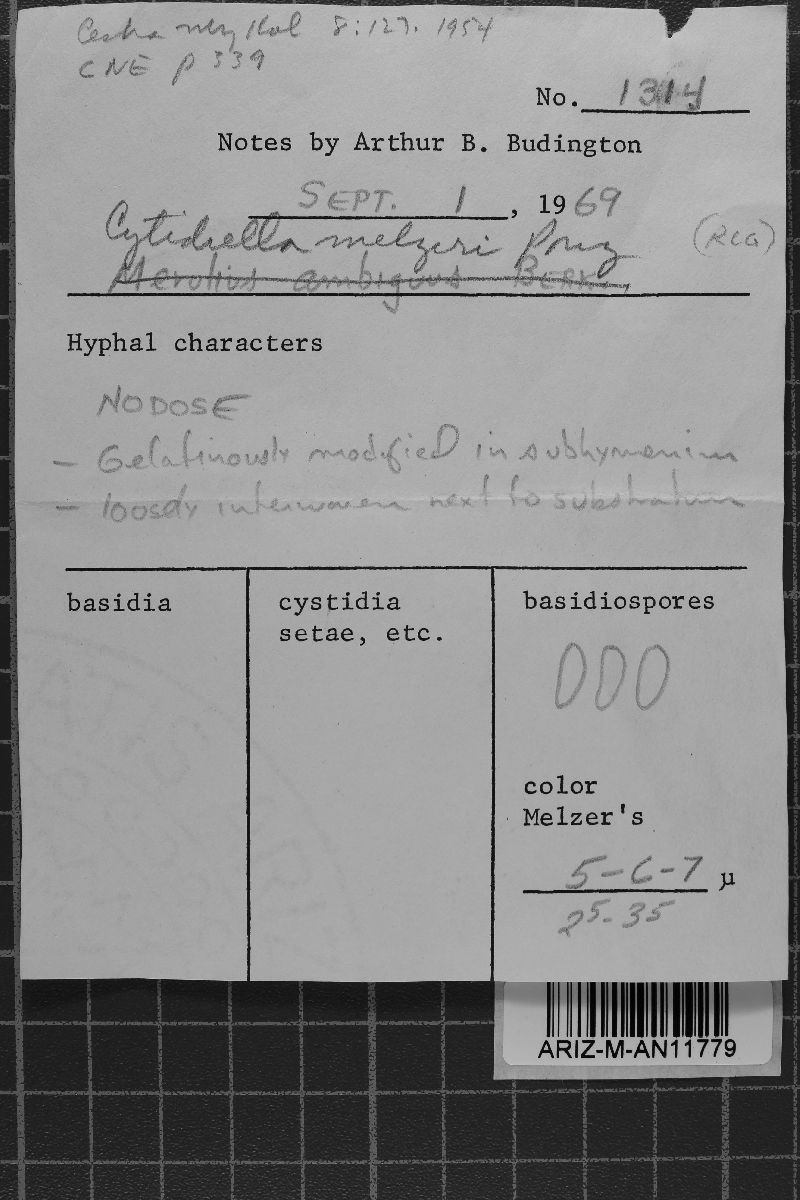 Ceska myk Kol 8:127. 1954
CNE p 339
No. 1314
Notes by Arthur B. Budington
SEPT. 1, 1969
Cytidiella melzeri Pouz (RLG)
Merulius ambiguus BERK.,
Hyphal characters
NODOSE
- Gelatinously modified in subhymenium
- loosely interwoven next to substratum
basidia
cystidia
setae, etc.
basidiospores
color
Melzer's
5-6-7 µ
25-35
ARIZ-M-AN11779